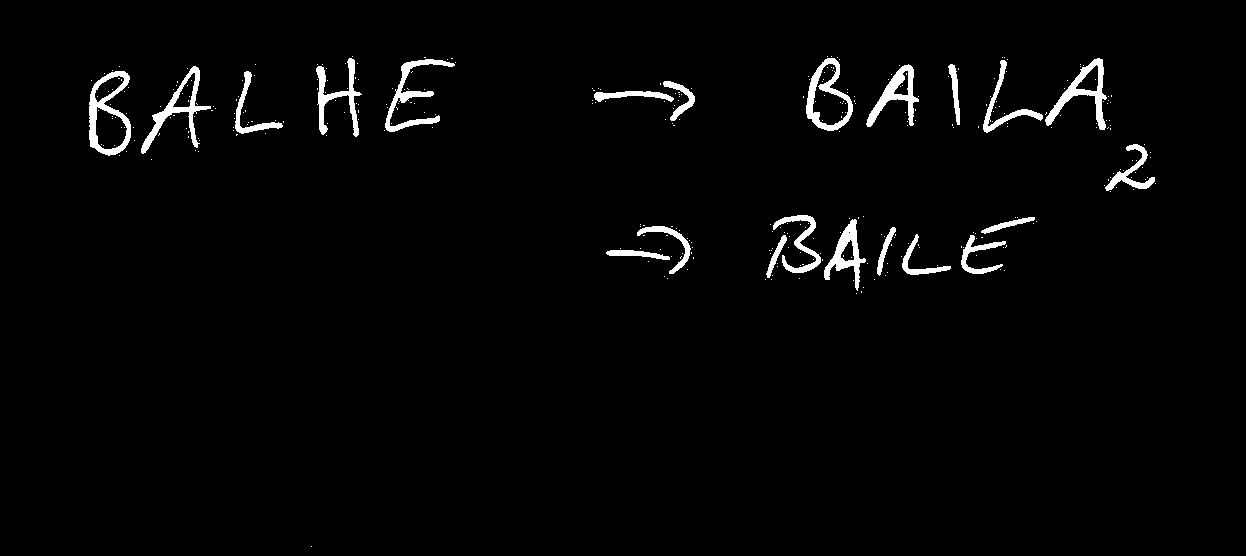 BALHE → BAILA2
→ BAILE